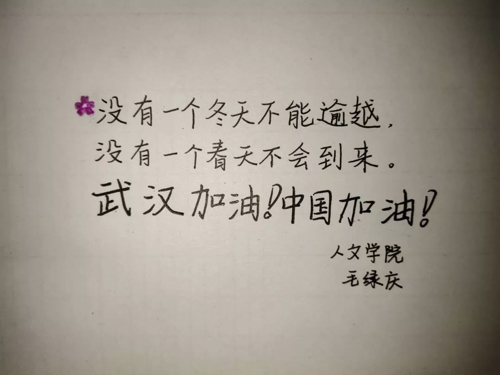 没有一个冬天不能逾越,
没有一个春天不会到来。
武汉加油!中国加油!
人文学院
毛绿庆